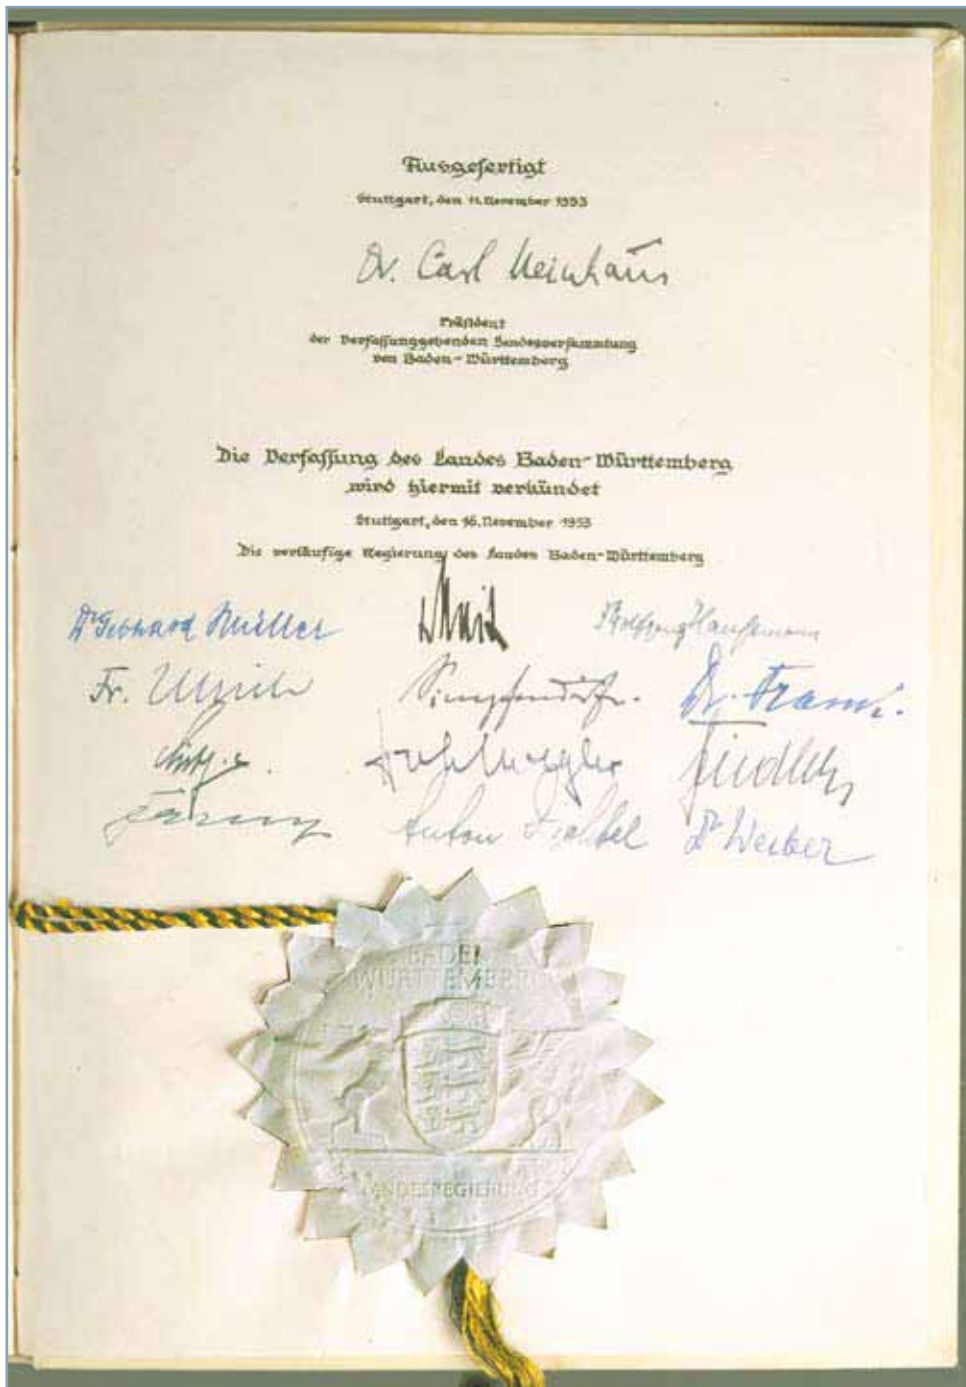 Ausgefertigt
Stuttgart, den 11. November 1953
Dr. Carl Neinhaus
Präsident
der Verfassunggebenden Landesversammlung
von Baden-Württemberg
Die Verfassung des Landes Baden-Württemberg
wird hiermit verkündet
Stuttgart, den 16. November 1953
Die vorläufige Regierung des Landes Baden-Württemberg
Dr Gebhard Müller Wolfgang Haussmann
Fr. Ulrich Simpfendörfer. Dr. Frank.
Hohlwegler Fiedler
Anton Dichtel Dr Werber
BADEN
WÜRTTEMBERG
LANDESREGIERUNG